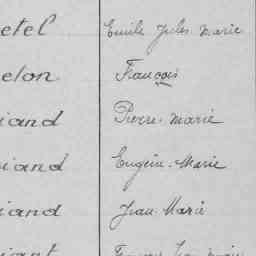 etel Emile Jules Marie
elon François
iand Pierre Marie
iand Eugène Marie
iand Jean Marie